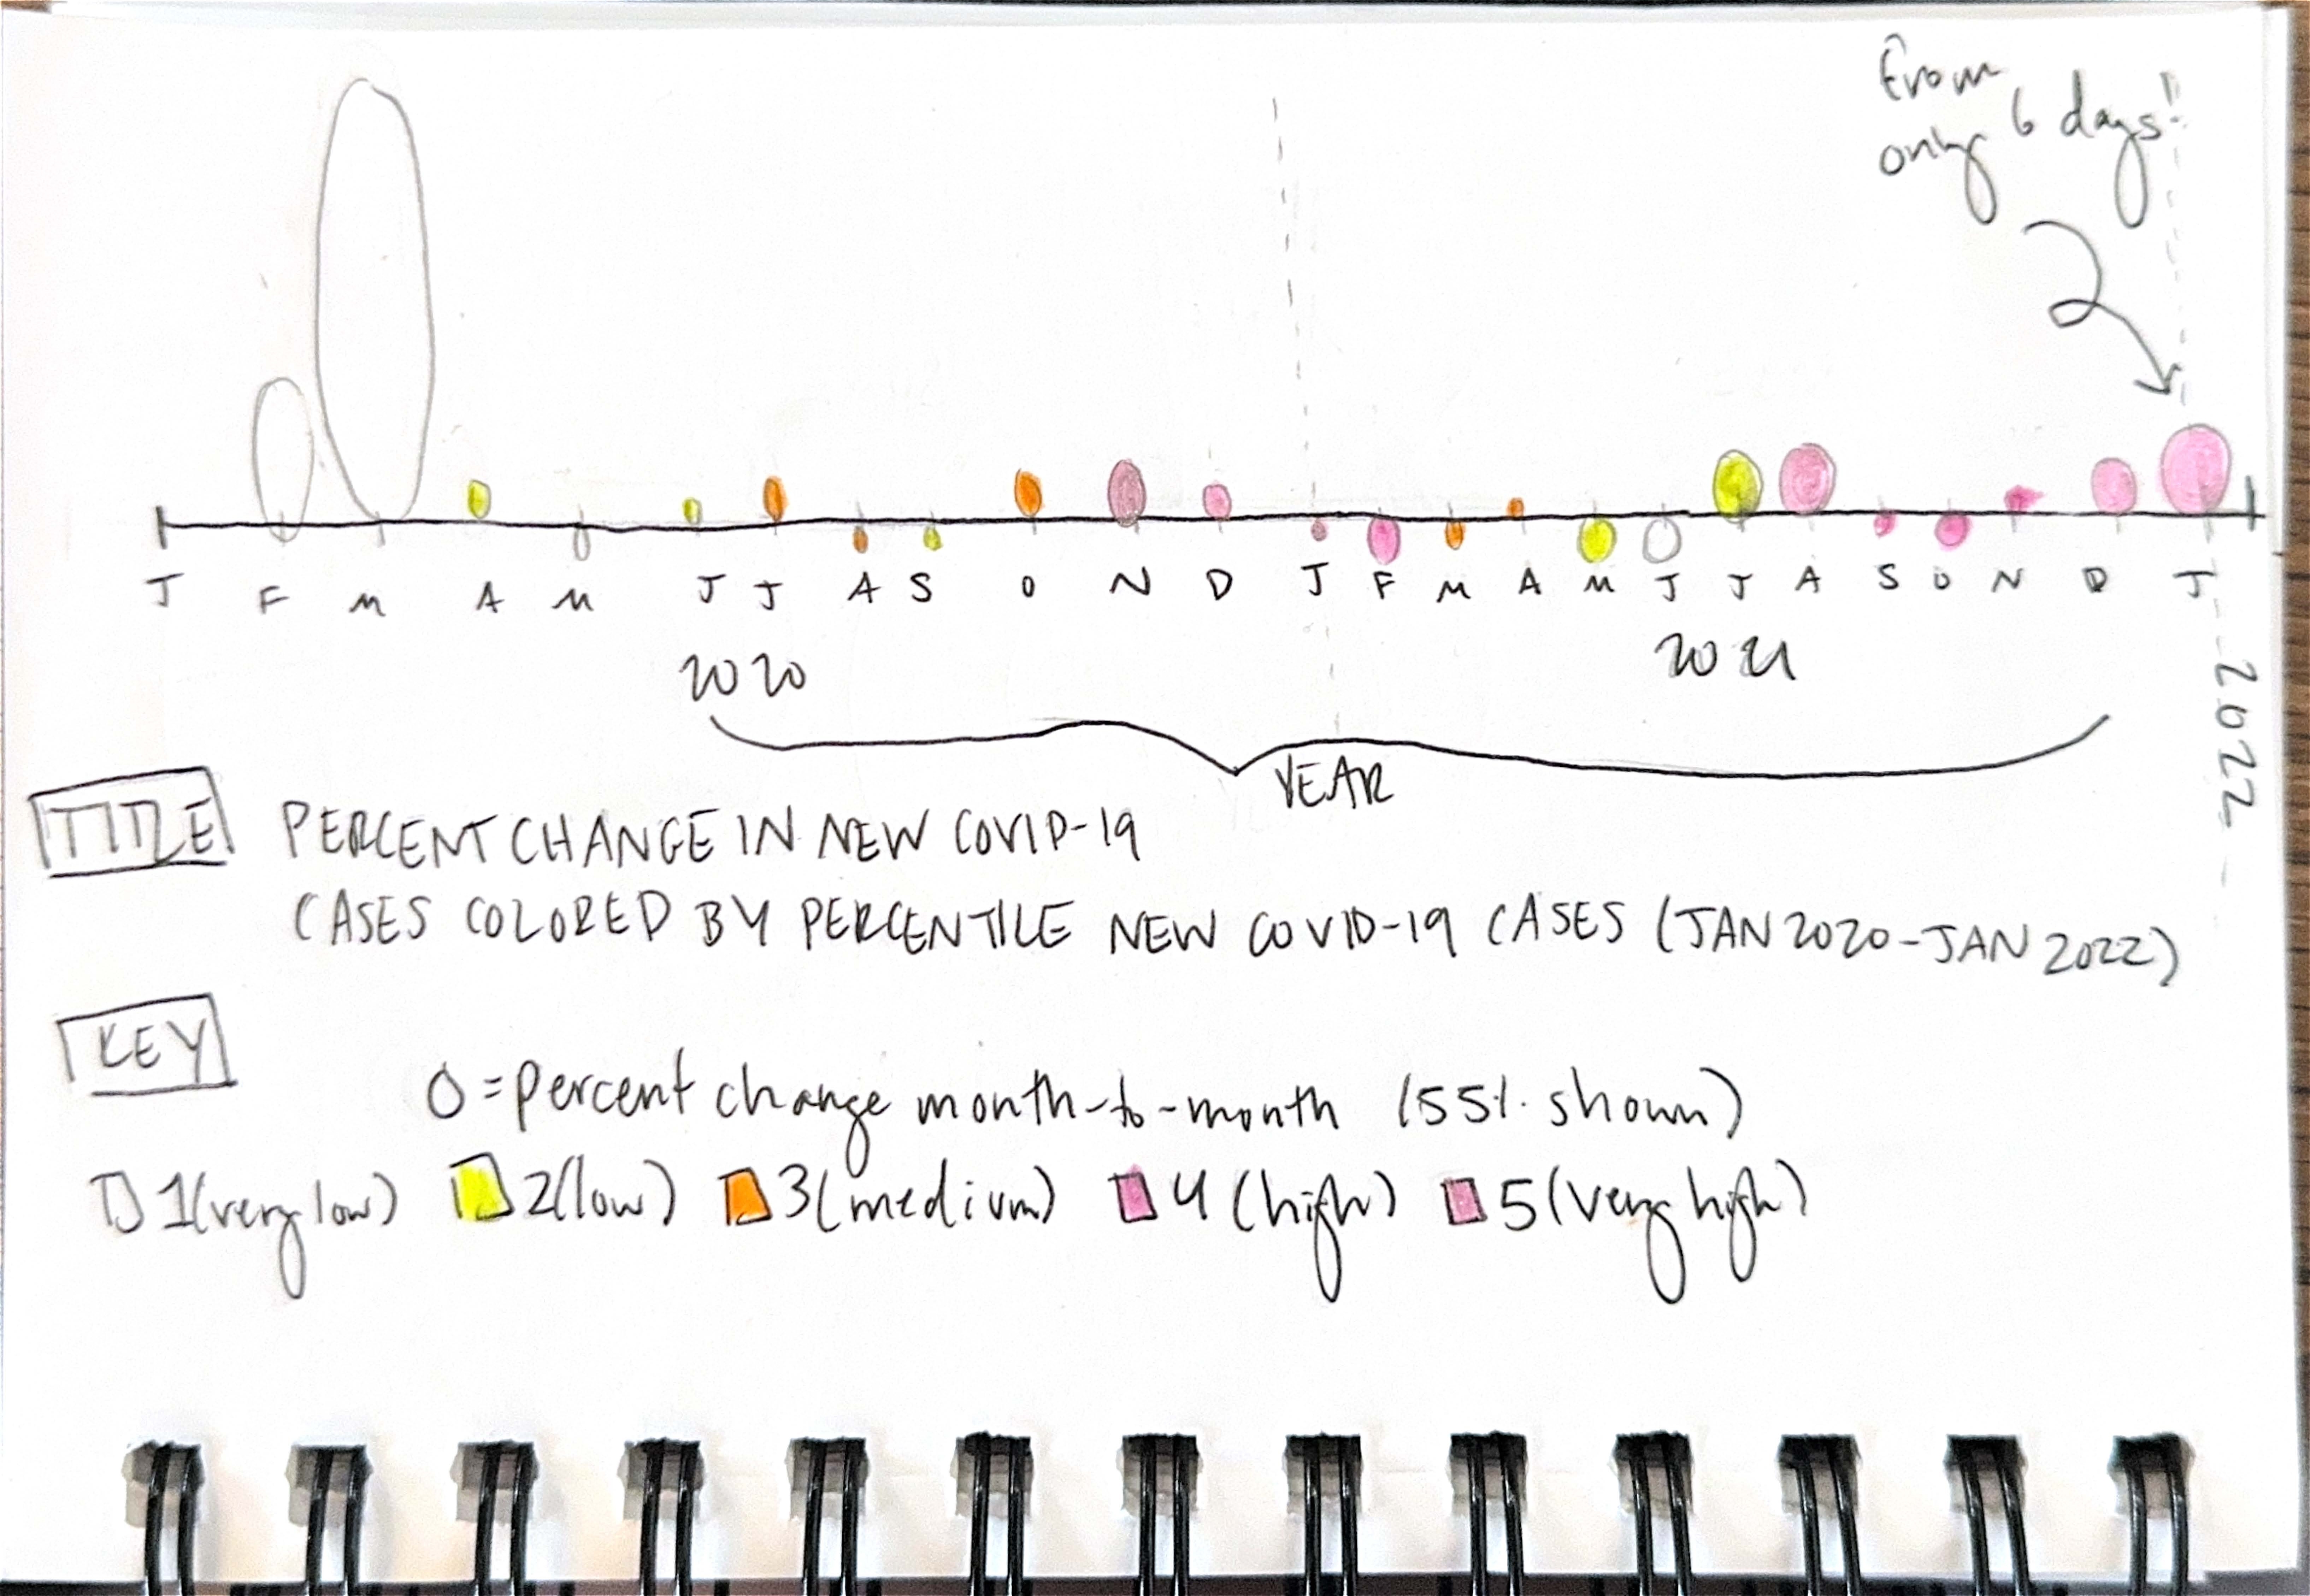 From
only 6 days!
J F M A M J J A S O N D J F M A M J J A S O N D J
2020 2021
2022
YEAR
TITLE PERCENT CHANGE IN NEW COVID-19
CASES COLORED BY PERCENTILE NEW COVID-19 CASES (JAN 2020-JAN 2022)
KEY
0 = percent change month-to-month (55% shown)
1 (very low) 2 (low) 3 (medium) 4 (high) 5 (very high)